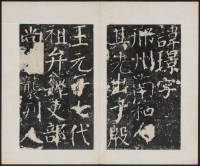 諱璟字
邢州南和人
其先出于殷
王元子七代
祖弁魏吏部
尚襲列人